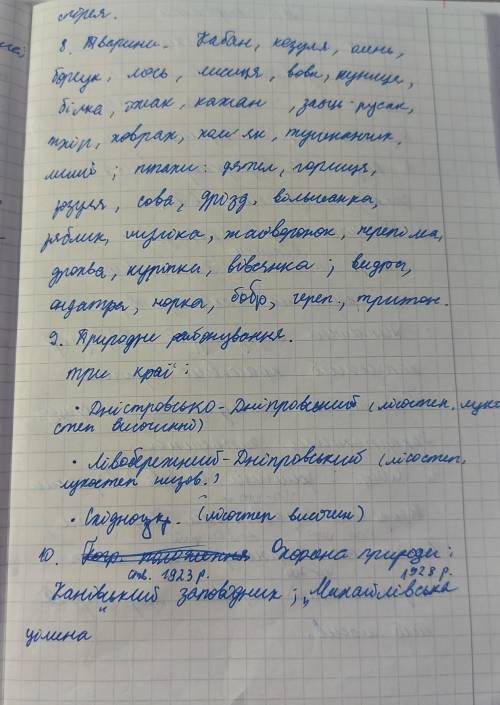 8. Тварини. Кабан, козуля, олень,
борсук, лось, лисиця, вовк, куниця,
білка, їжак, кажан, заєць-русак,
тхір, ховрах, хом'як, тушканчик,
миші; птахи: дятел, горлиця,
зозуля, сова, дрозд, вільшанка,
зяблик, шуліка, жайворонок, перепілка,
дрохва, куріпка, вівсянка; видра,
ондатра, норка, бобр, череп., тритон.
9. Природне районування.
три краї:
• Дністровсько-Дніпровський (лісостеп.
степ височини)
• Лівобережний-Дніпровський (лісостеп.
низов.)
• Східноукр. (лісостеп височин)
10. Охорона природи:
ств. 1923 р. 1928 р.
Канівський заповідник; „Михайлівська
цілина"